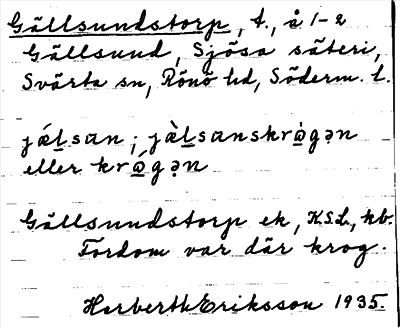 Gällsundstorp, t., å 1-2
Gällsund, Sjösa säteri,
Svärta sn, Rönö hd, Söderm. l.
jǽlsan; jæ̀lsanskrǻgən
eller krǻgən
Gällsundstorp ek, K.S.L., kb.
Fordom var där krog.
Harberth Eriksson 1935